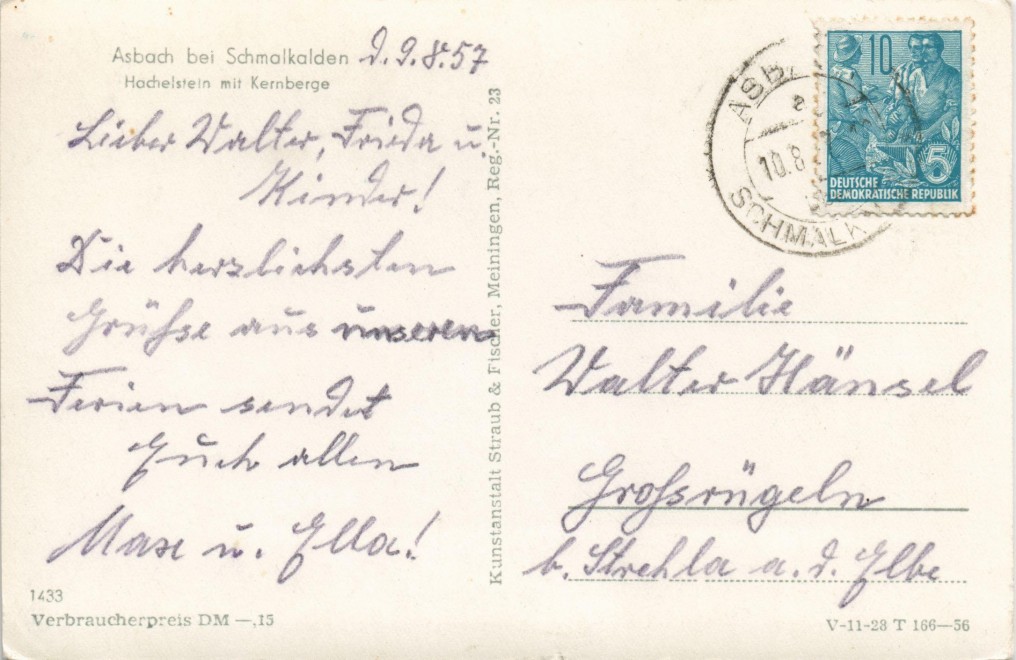 Asbach bei Schmalkalden d. 9.8.57
Hachelstein mit Kernberge
Lieber Walter, Frieda u.
Kinder!
Die herzlichsten
Grüße aus unseren
Ferien sendet
Euch allen
Max u. Ella!
1433
Verbraucherpreis DM —,15
Kunstanstalt Straub & Fischer, Meiningen, Reg.-Nr. 23
10
5
DEUTSCHE
DEMOKRATISCHE REPUBLIK
10.8
Familie
Walter Hänsel
Großrügeln
b. Strehla a. d. Elbe
V-11-28 T 166—56